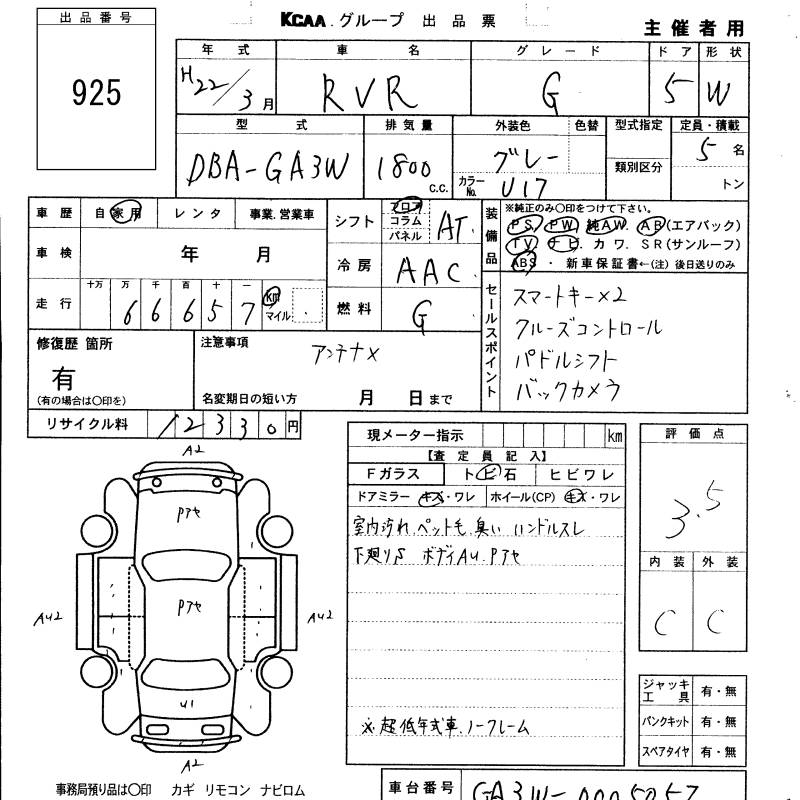 出品番号
925
KCAA.グループ 出品票
主催者用
年式 車名 グレード ドア 形状
H22/3月 RVR G 5 W
型式 排気量 外装色 色替 型式指定 定員・積載
DBA-GA3W 1800 c.c. グレー 類別区分 5名
カラーNo. U17 トン
車歴 自家用 レンタ 事業.営業車
シフト フロア コラム パネル AT
装備品 ※純正のみ〇印をつけて下さい。
PS. PW. 純AW. AB(エアバック)
TV. ナビ. カワ. SR(サンルーフ)
ABS・新車保証書←(注)後日送りのみ
車検 年 月
冷房 AAC
走行 十万 万 千 百 十 一
66657 km マイル
燃料 G
セールスポイント
スマートキー×2
クルーズコントロール
パドルシフト
バックカメラ
修復歴 箇所
有
(有の場合は〇印を)
注意事項
アンテナ×
名変期日の短い方 月 日まで
リサイクル料 12330円
現メーター指示 km
【査定員記入】
Fガラス トビ石 ヒビワレ
ドアミラー キズ・ワレ ホイール(CP) キズ・ワレ
室内汚れ.ペット毛.臭い ハンドルスレ
下廻りS ボディAU.Pアセ
※.超低年式車.ノークレーム
評価点
3.5
内装 外装
C C
ジャッキ工具 有・無
パンクキット 有・無
スペアタイヤ 有・無
A2
Pアセ
Pアセ
AU2
AU2
U1
A2
事務局預り品は〇印 カギ リモコン ナビロム
車台番号 GA3W-